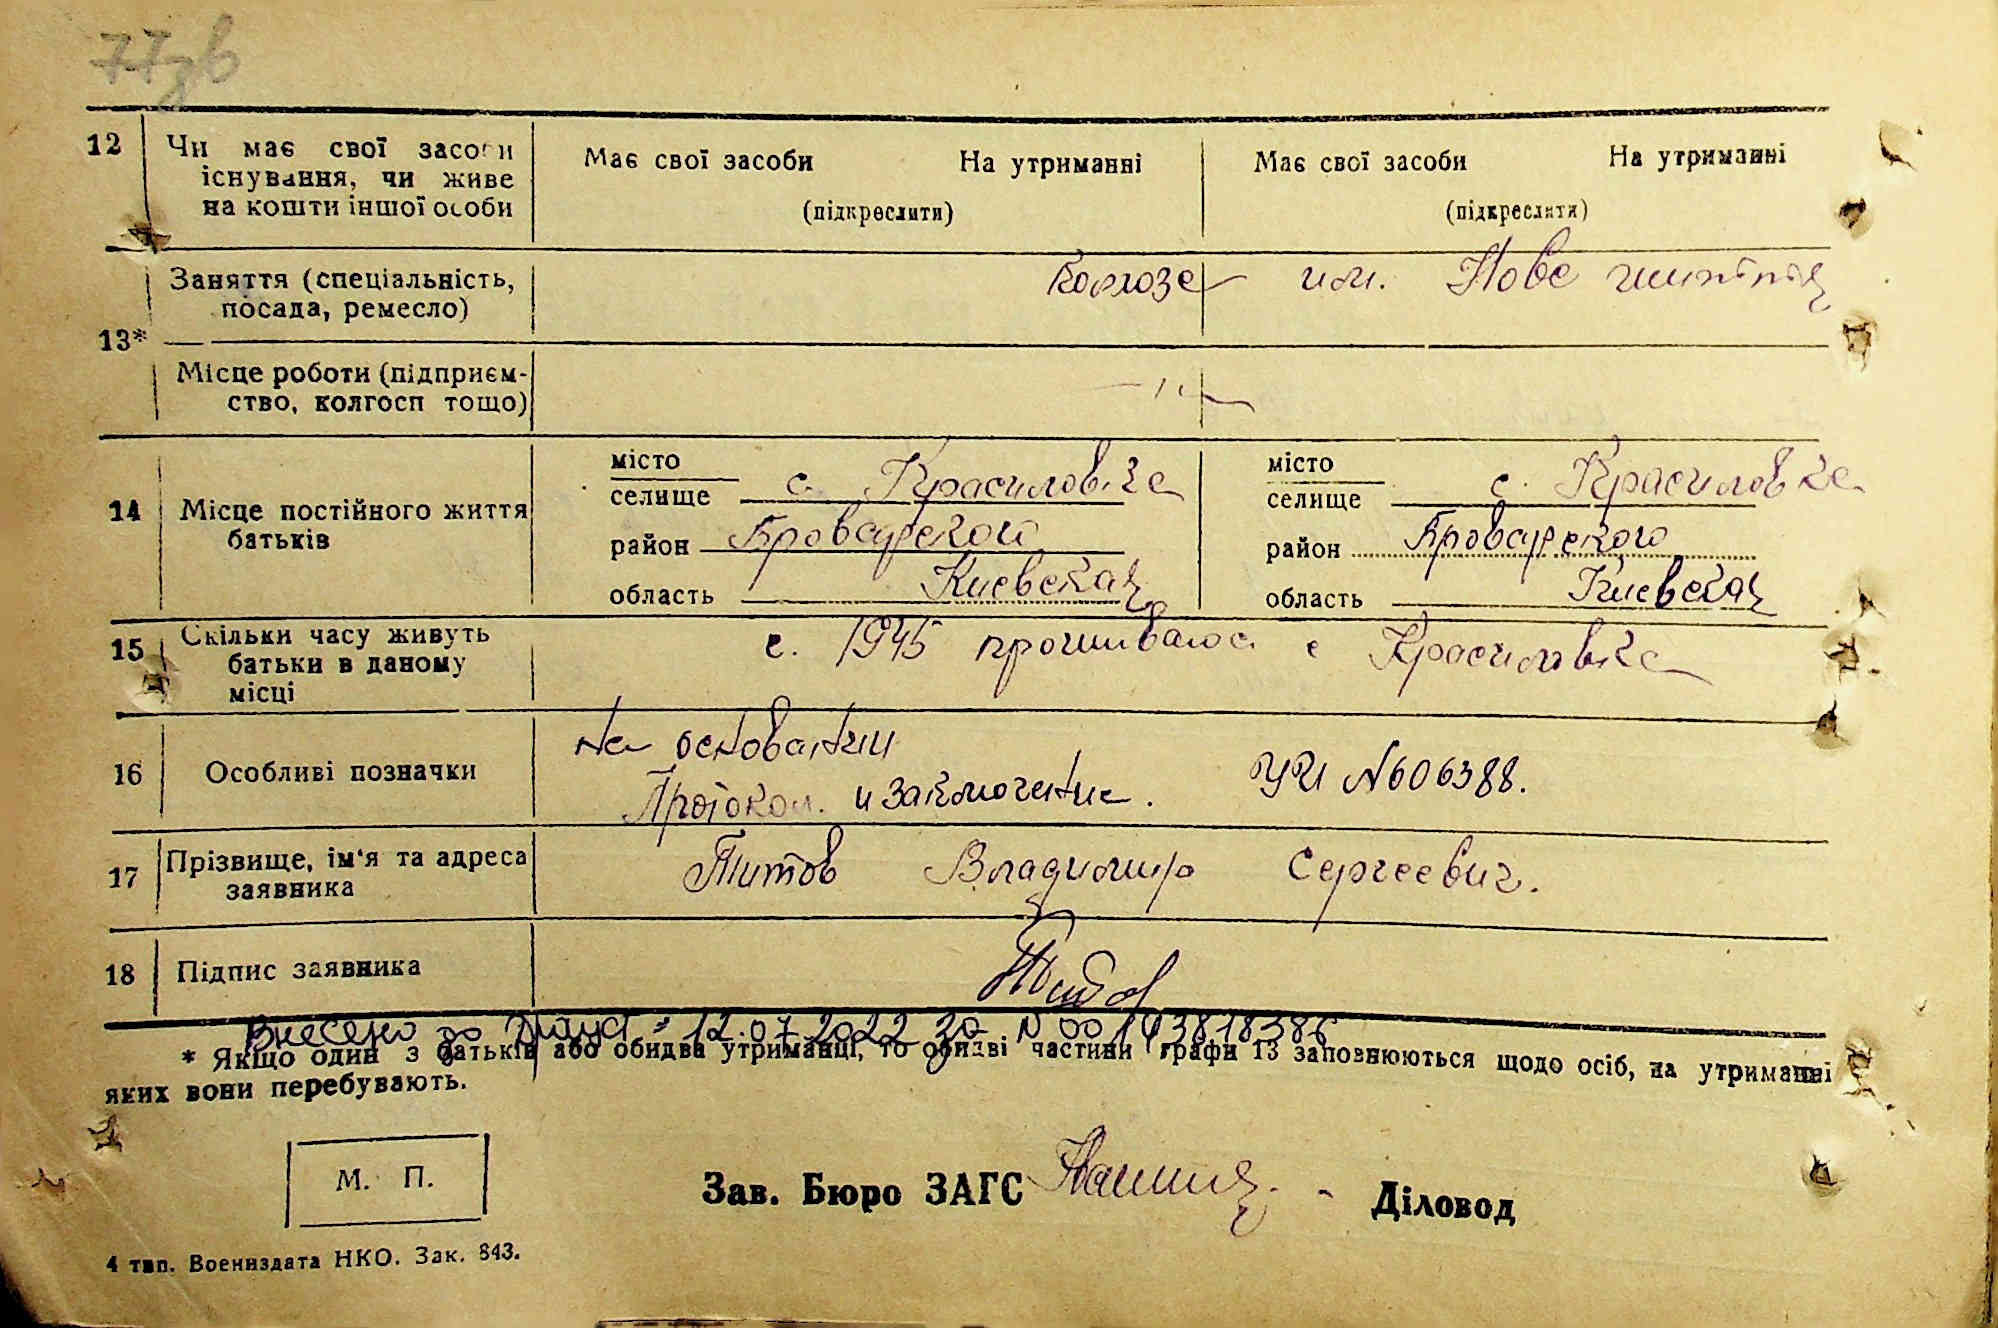 77зв
12 Чи має свої засоби існування, чи живе на кошти іншої особи
Має свої засоби На утриманні
(підкреслити)
Має свої засоби На утриманні
(підкреслити)
13*
Заняття (спеціальність, посада, ремесло)
Колхозе им. Нове життя
Місце роботи (підприєм-
ство, колгосп тощо)
— " —
14 Місце постійного життя батьків
місто
селище с. Красиловке
район Броварского
область Киевская
місто
селище с. Красиловке
район Броварского
область Киевская
15 Скільки часу живуть батьки в даному місці
с. 1945 проживают с Красиловке
16 Особливі позначки
На основании
Протокол. и заключение. УИ №606388.
17 Прізвище, ім'я та адреса заявника
Титов Владимир Сергеевич.
18 Підпис заявника
Титов
Внесено до 12.07.2022 за N 00143818386
* Якщо один з батьків або обидва утриманці, то обидві частини графи 13 заповнюються щодо осіб, на утриманні
яких вони перебувають.
М. П.
Зав. Бюро ЗАГС
Діловод
4 тип. Воениздата НКО. Зак. 843.